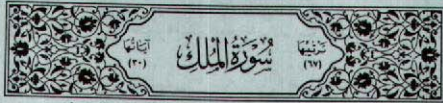 ترتيبها
(٦٧)
سُورَةُ الْمُلْكِ
آياتها
(٣٠)